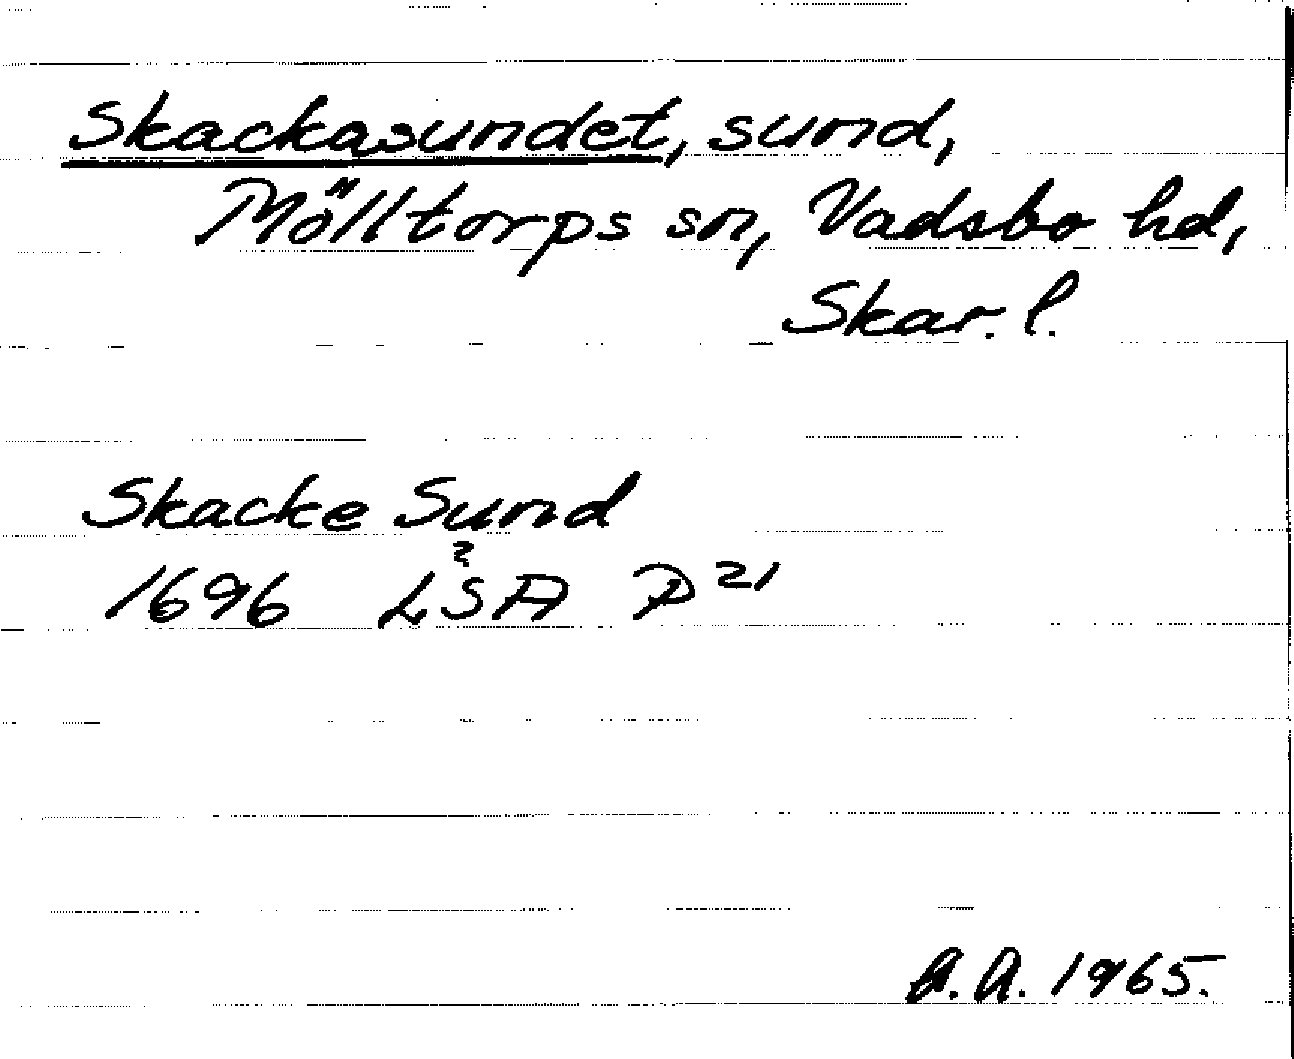 Skackasundet, sund,
Mölltorps sn, Vadsbo hd,
Skar. l.
Skacke Sund
1696 LSA P 21
A.A. 1965.